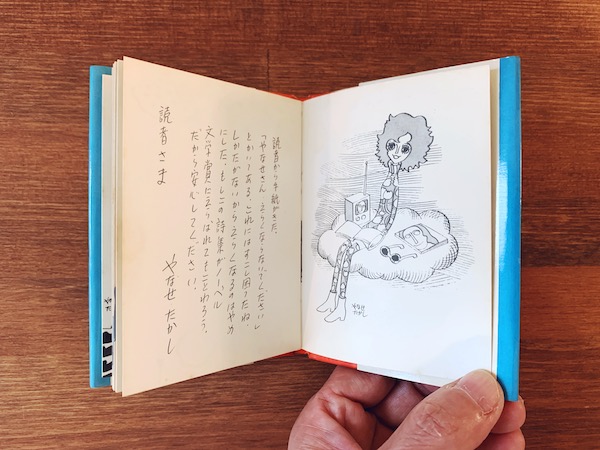 読者から手紙がきた。
「やなせさん えらくならないでください」
とかいてある。これにはすこし困ったね。
しかたがないからえらくなるのはやめ
にした。もしこの詩集がノーベル
文学賞にえらばれてもことわろう。
だから安心してください。
やなせ たかし
読者さま
やなせ
たかし